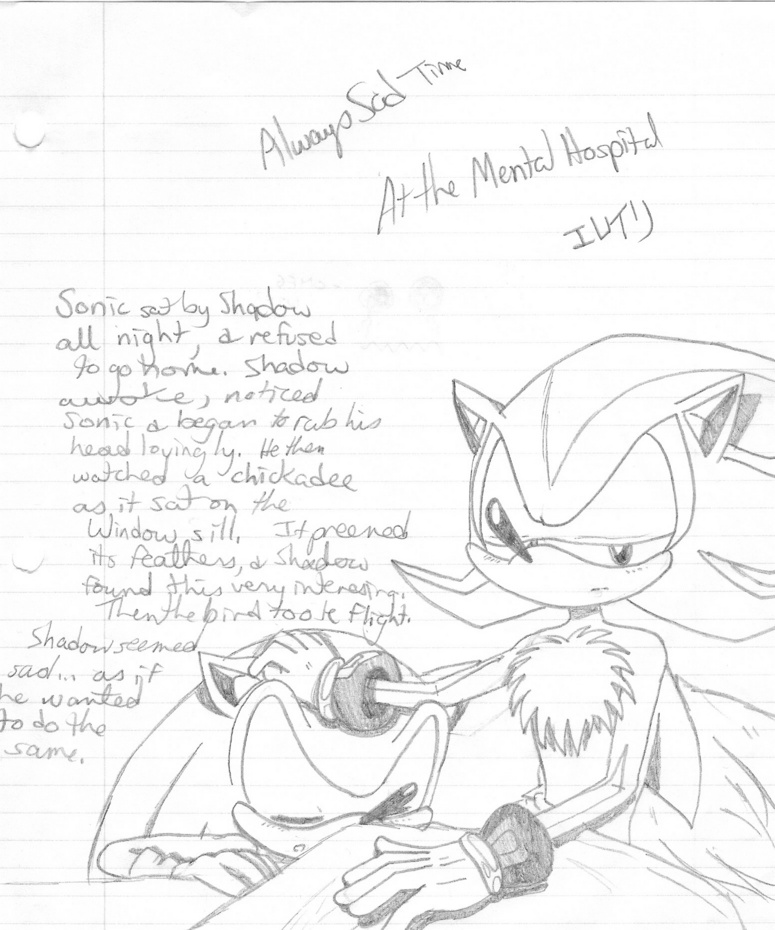 Always Sad Time
At the Mental Hospital
Sonic sat by Shadow
all night, & refused
to go home. Shadow
awoke, noticed
Sonic & began to rub his
head lovingly. He then
watched a chickadee
as it sat on the
Window sill. It preened
its feathers, & Shadow
found this very interesing.
Then the bird took flight.
Shadow seemed
sad... as if
he wanted
to do the
same.